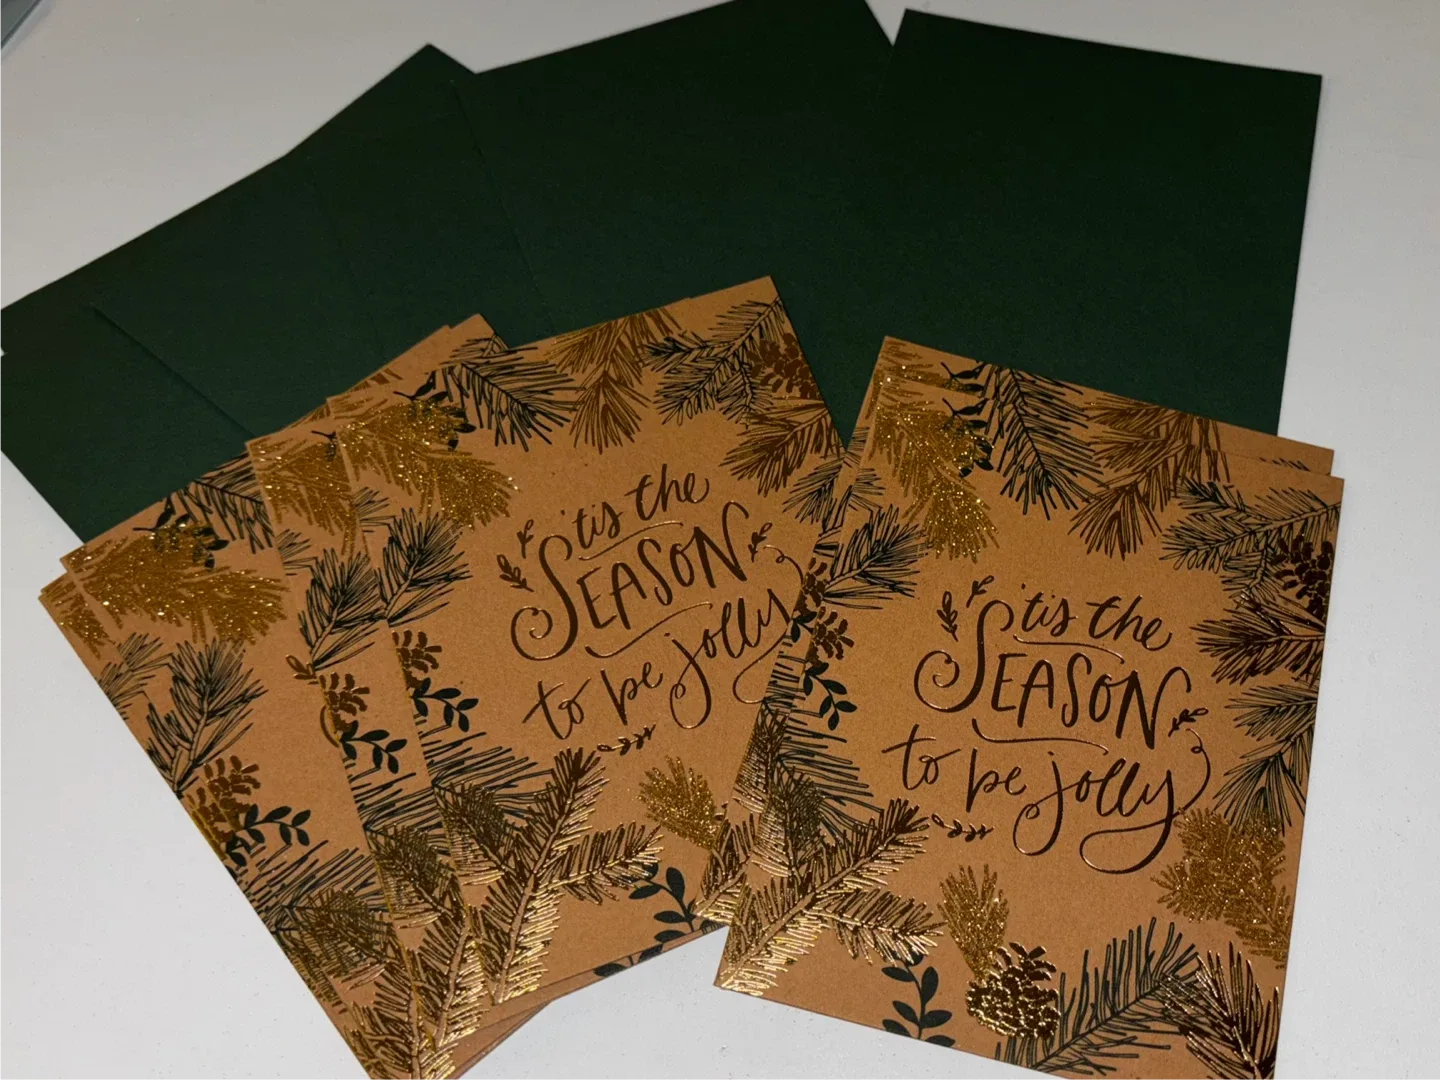 'tis the
SEASON
to be jolly
'tis the
SEASON
to be jolly